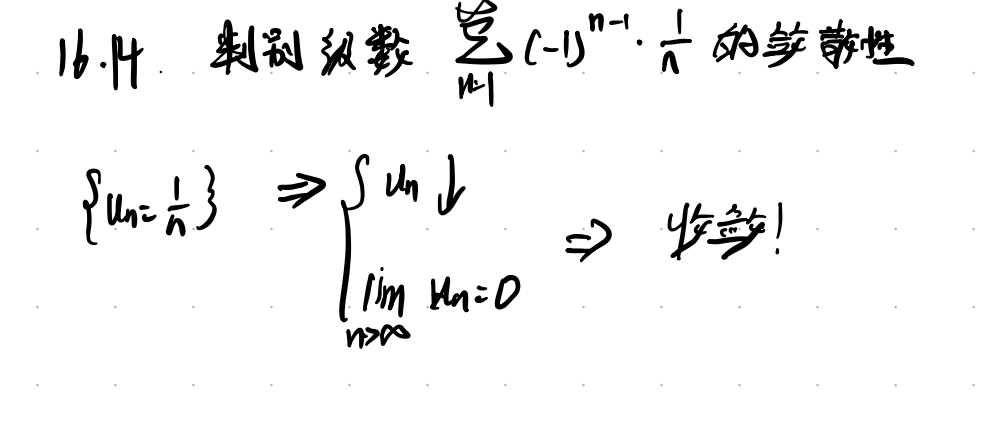 16.14. 判别级数 ∑_{n=1}^{∞} (-1)^{n-1} · 1/n 的敛散性
{Un = 1/n} ⇒ { Un ↓
lim_{n→∞} Un = 0 ⇒ 收敛!